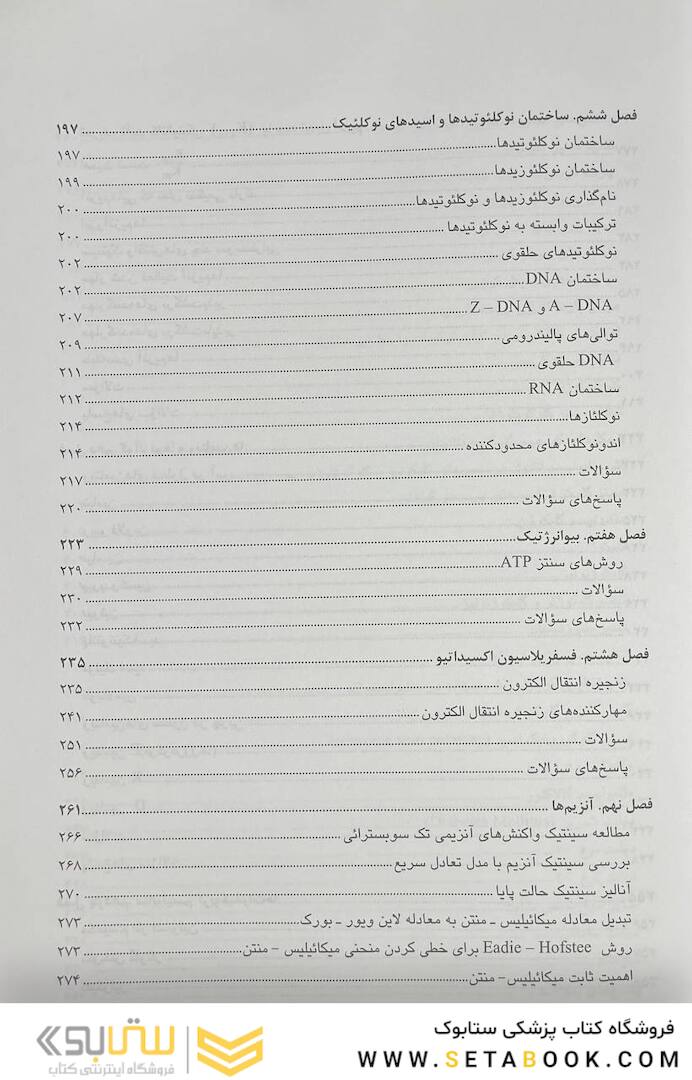 فصل ششم. ساختمان نوکلئوتیدها و اسیدهای نوکلئیک ۱۹۷
ساختمان نوکلئوتیدها ۱۹۷
ساختمان نوکلئوزیدها ۱۹۹
نام‌گذاری نوکلئوزیدها و نوکلئوتیدها ۲۰۰
ترکیبات وابسته به نوکلئوتیدها ۲۰۰
نوکلئوتیدهای حلقوی ۲۰۲
ساختمان DNA ۲۰۲
A – DNA و Z – DNA ۲۰۷
توالی‌های پالیندرومی ۲۰۹
DNA حلقوی ۲۱۱
ساختمان RNA ۲۱۲
نوکلئازها ۲۱۴
اندونوکلئازهای محدودکننده ۲۱۴
سؤالات ۲۱۷
پاسخ‌های سؤالات ۲۲۰
فصل هفتم. بیوانرژتیک ۲۲۳
روش‌های سنتز ATP ۲۲۹
سؤالات ۲۳۰
پاسخ‌های سؤالات ۲۳۲
فصل هشتم. فسفریلاسیون اکسیداتیو ۲۳۵
زنجیره انتقال الکترون ۲۳۵
مهارکننده‌های زنجیره انتقال الکترون ۲۴۱
سؤالات ۲۵۱
پاسخ‌های سؤالات ۲۵۶
فصل نهم. آنزیم‌ها ۲۶۱
مطالعه سینتیک واکنش‌های آنزیمی تک سوبسترائی ۲۶۶
بررسی سینتیک آنزیم با مدل تعادل سریع ۲۶۸
آنالیز سینتیک حالت پایا ۲۷۰
تبدیل معادله میکائیلیس ـ منتن به معادله لاین ویور ـ بورک ۲۷۳
روش Eadie – Hofstee برای خطی کردن منحنی میکائیلیس – منتن ۲۷۳
اهمیت ثابت میکائیلیس– منتن ۲۷۴
فروشگاه کتاب پزشکی ستابوک
WWW.SETABOOK.COM
ستابوک
فروشگاه اینترنتی کتاب